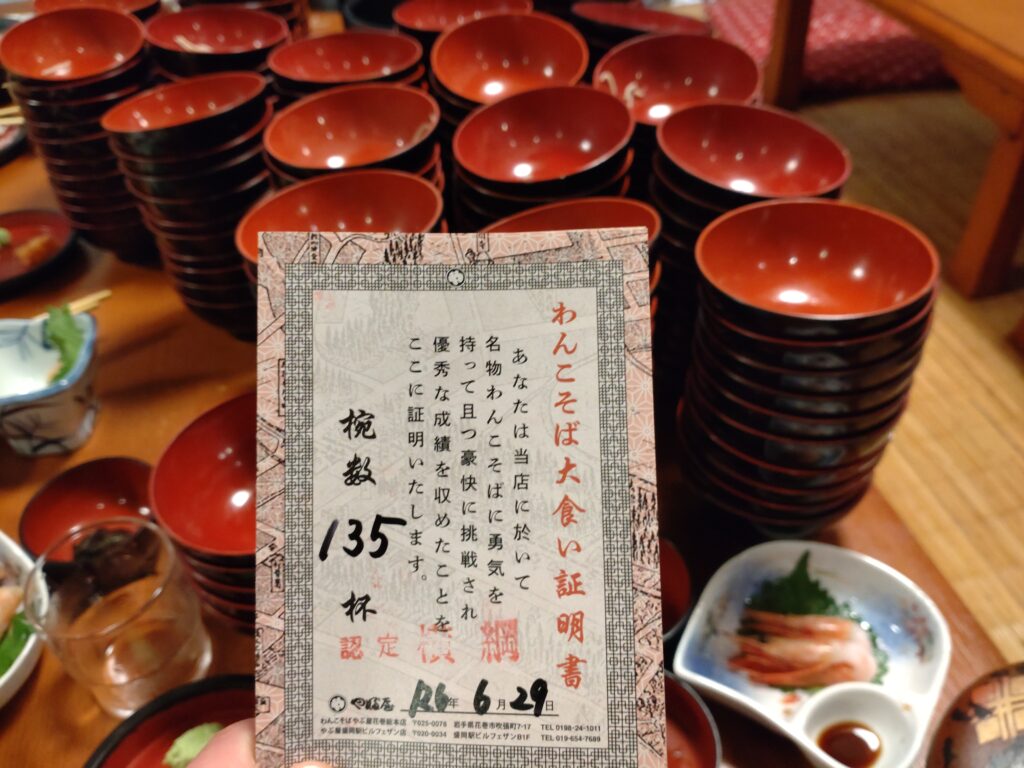 わんこそば大食い証明書
あなたは当店に於いて
名物わんこそばに勇気を
持って且つ豪快に挑戦され
優秀な成績を収めたことを
ここに証明いたします。
椀数 135 杯
認定 横綱
やぶ屋 R6年 6月29日
わんこそばやぶ屋花巻総本店 〒025-0076 岩手県花巻市吹張町7-17 TEL 0198-24-1011
やぶ屋盛岡駅ビルフェザン店 〒020-0034 盛岡駅ビルフェザンB1F TEL 019-654-7689